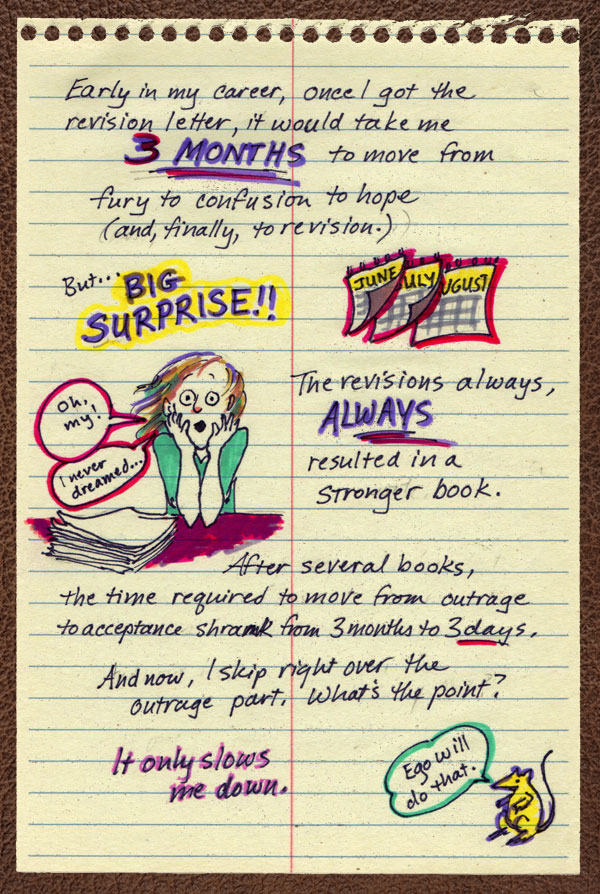 Early in my career, once I got the
revision letter, it would take me
3 MONTHS to move from
fury to confusion to hope
(and, finally, to revision.)
But... BIG
SURPRISE!!
JUNE ULY UGUST
Oh,
my!
I never
dreamed...
The revisions always,
ALWAYS
resulted in a
stronger book.
After several books,
the time required to move from outrage
to acceptance shrank from 3 months to 3 days.
And now, I skip right over the
outrage part. What's the point?
It only slows
me down.
Ego will
do that.